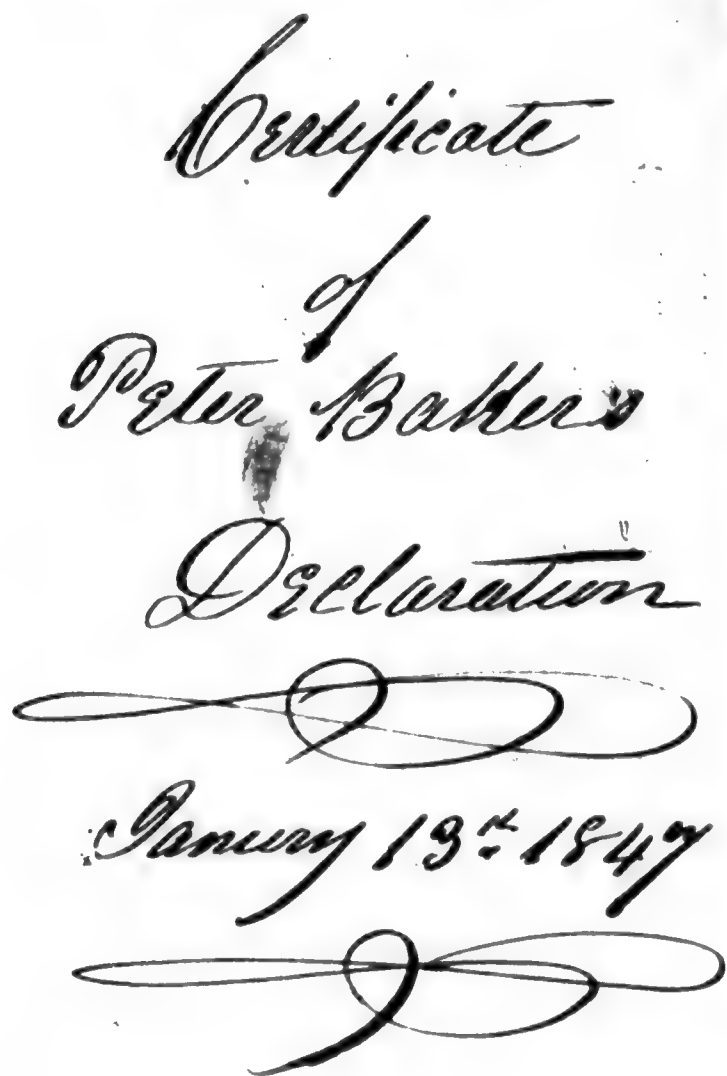 Certificate
of
Peter Bakers
Declaration
Janury 13th 1847